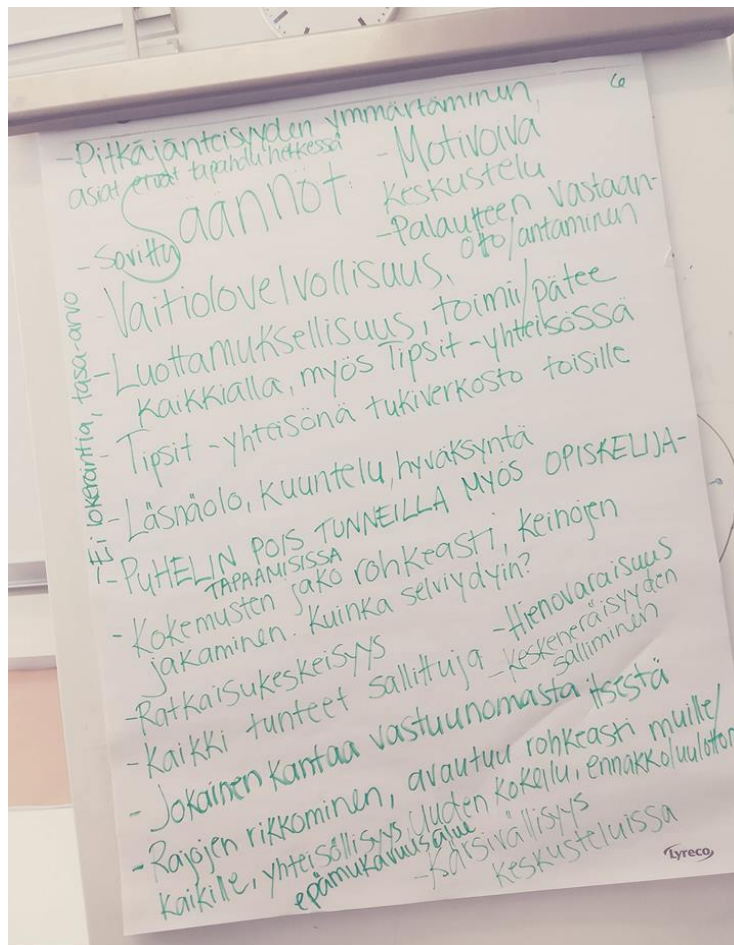 6
-Pitkäjänteisyyden ymmärtäminen,
asiat eivät tapahdu hetkessä
Säännöt:
-Motivoiva
keskustelu
-Palautteen vastaan-
otto/antaminen
-Sovittu
-Vaitiolovelvollisuus,
-Luottamuksellisuus, toimii/pätee
kaikkialla, myös Tipsit-yhteisössä
-Tipsit-yhteisönä tukiverkosto toisille
-Läsnäolo, kuuntelu, hyväksyntä
-PUHELIN POIS TUNNEILLA MYÖS OPISKELIJA-
TAPAAMISISSA
-Kokemusten jako rohkeasti, keinojen
jakaminen. Kuinka selviydyin?
-Ratkaisukeskeisyys
-Hienovaraisuus
-keskeneräisyyden
salliminen
-Kaikki tunteet sallittuja
-Jokainen kantaa vastuun omasta itsestä
-Rajojen rikkominen, avautuu rohkeasti muille/
kaikille, yhteisöllisyys, Uuden kokeilu, ennakkoluuloton
epämukavuusalue
-Kärsivällisyys
keskusteluissa
-Ei lokerointia, tasa-arvo
Lyreco